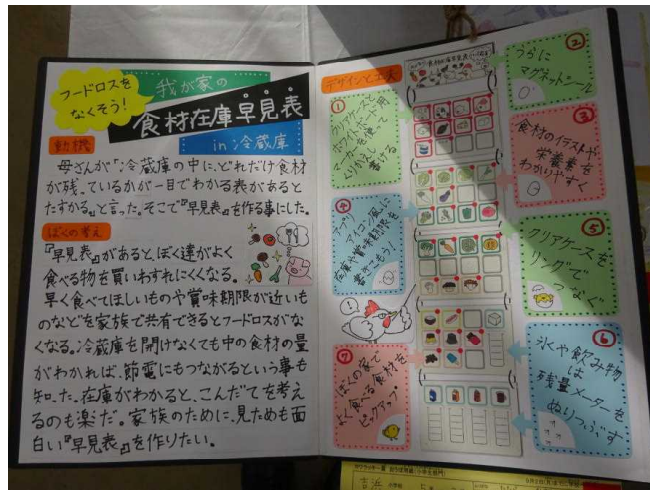 フードロスを
なくそう!
我が家の
食材在庫早見表
in 冷蔵庫
動機
母さんが「冷蔵庫の中に、どれだけ食材
が残っているかが一目でわかる表があると
たすかる。」と言った。そこで『早見表』を作る事にした。
ぼくの考え
『早見表』があると、ぼく達がよく
食べる物を買いわすれにくくなる。
早く食べてほしいものや賞味期限が近いも
のなどを家族で共有できるとフードロスがな
くなる。冷蔵庫を開けなくても中の食材の量
がわかれば、節電にもつながるという事も
知った。在庫がわかると、こんだてを考え
るのも楽だ。家族のために、見ためも面
白い『早見表』を作りたい。
デザインと工夫
①
クリアケースと
ホワイトボード用
マーカーを使って
くりかえし
書ける
②
うらに
マグネットシール
③
食材のイラストや
栄養素を
わかりやすく
④
アプリ
アイコン風に
在庫や賞味期限を
書きこもう!
⑤
クリアケースを
リングで
つなぐ
⑥
氷や飲み物
は
残量メーターを
ぬりつぶす
⑦
ぼくの家で
よく食べる食材を
ピックアップ